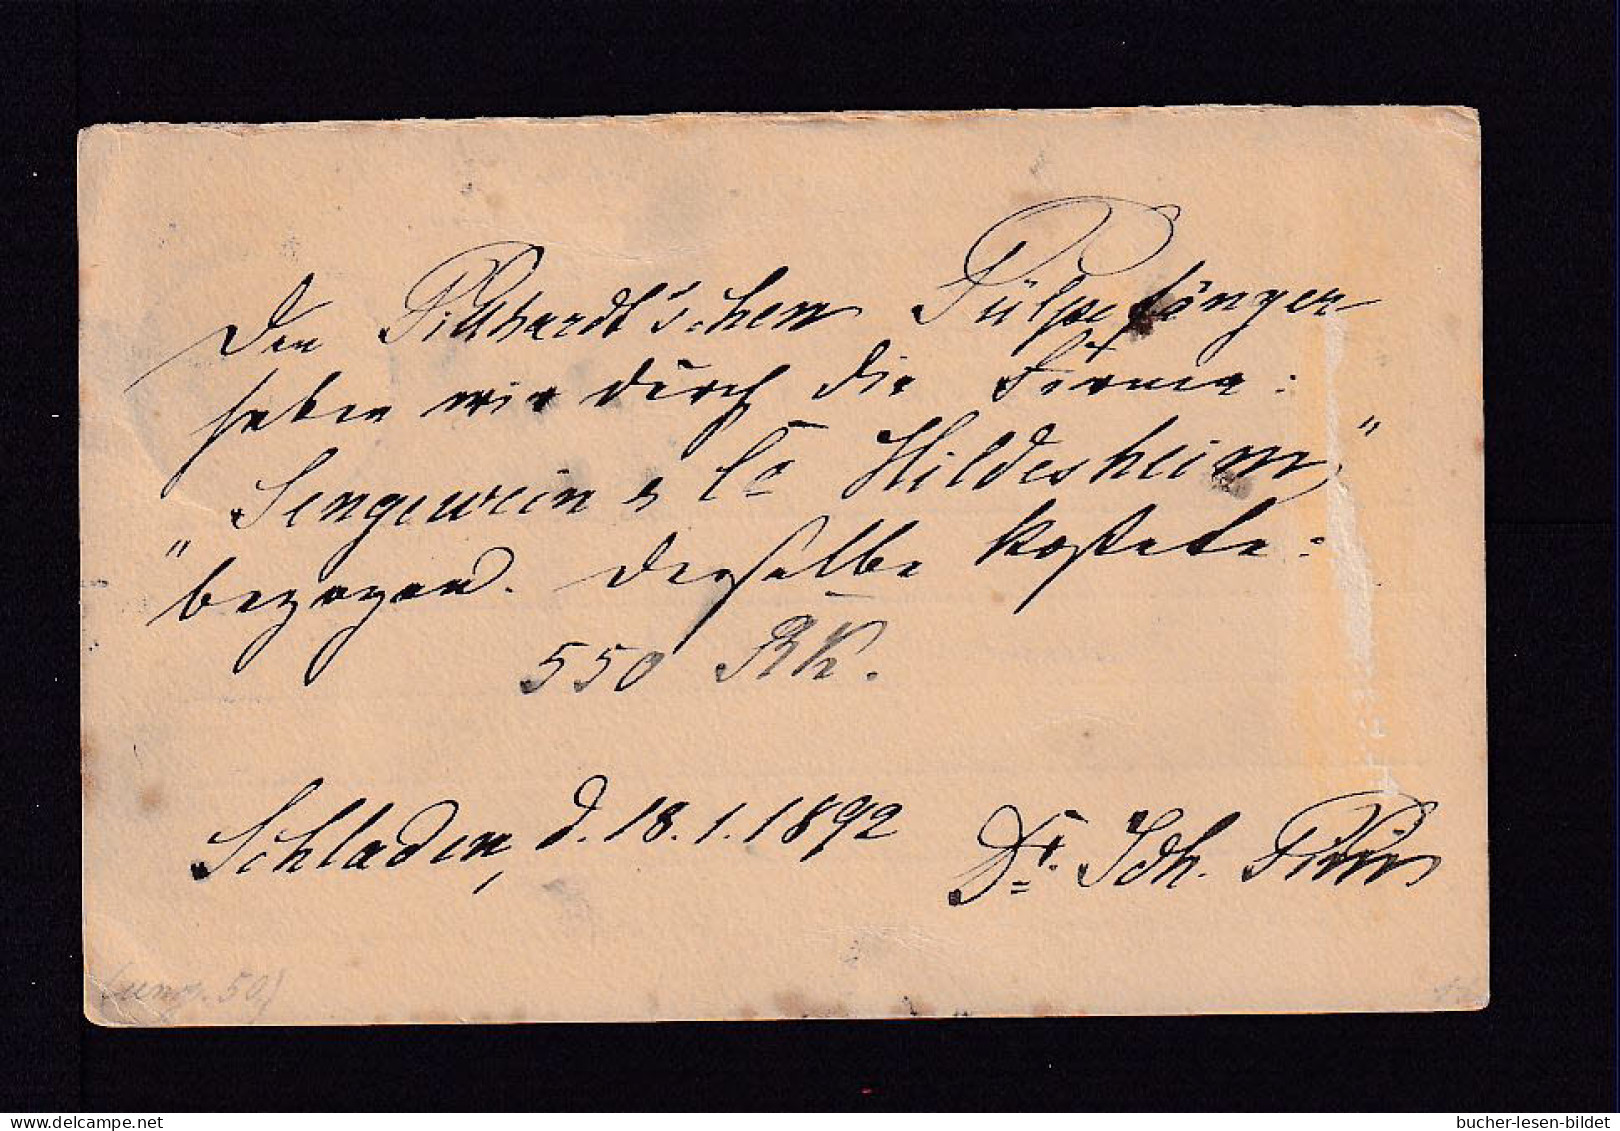 Den Pillhardt'schen Pülpefänger
haben wir durch die Firma:
"Sengewein & Co Hildesheim"
bezogen. Derselbe kostete:
550 RM.
Schladen, d. 18.1.1892
Dr. Joh.
bucher-lesen-bildet